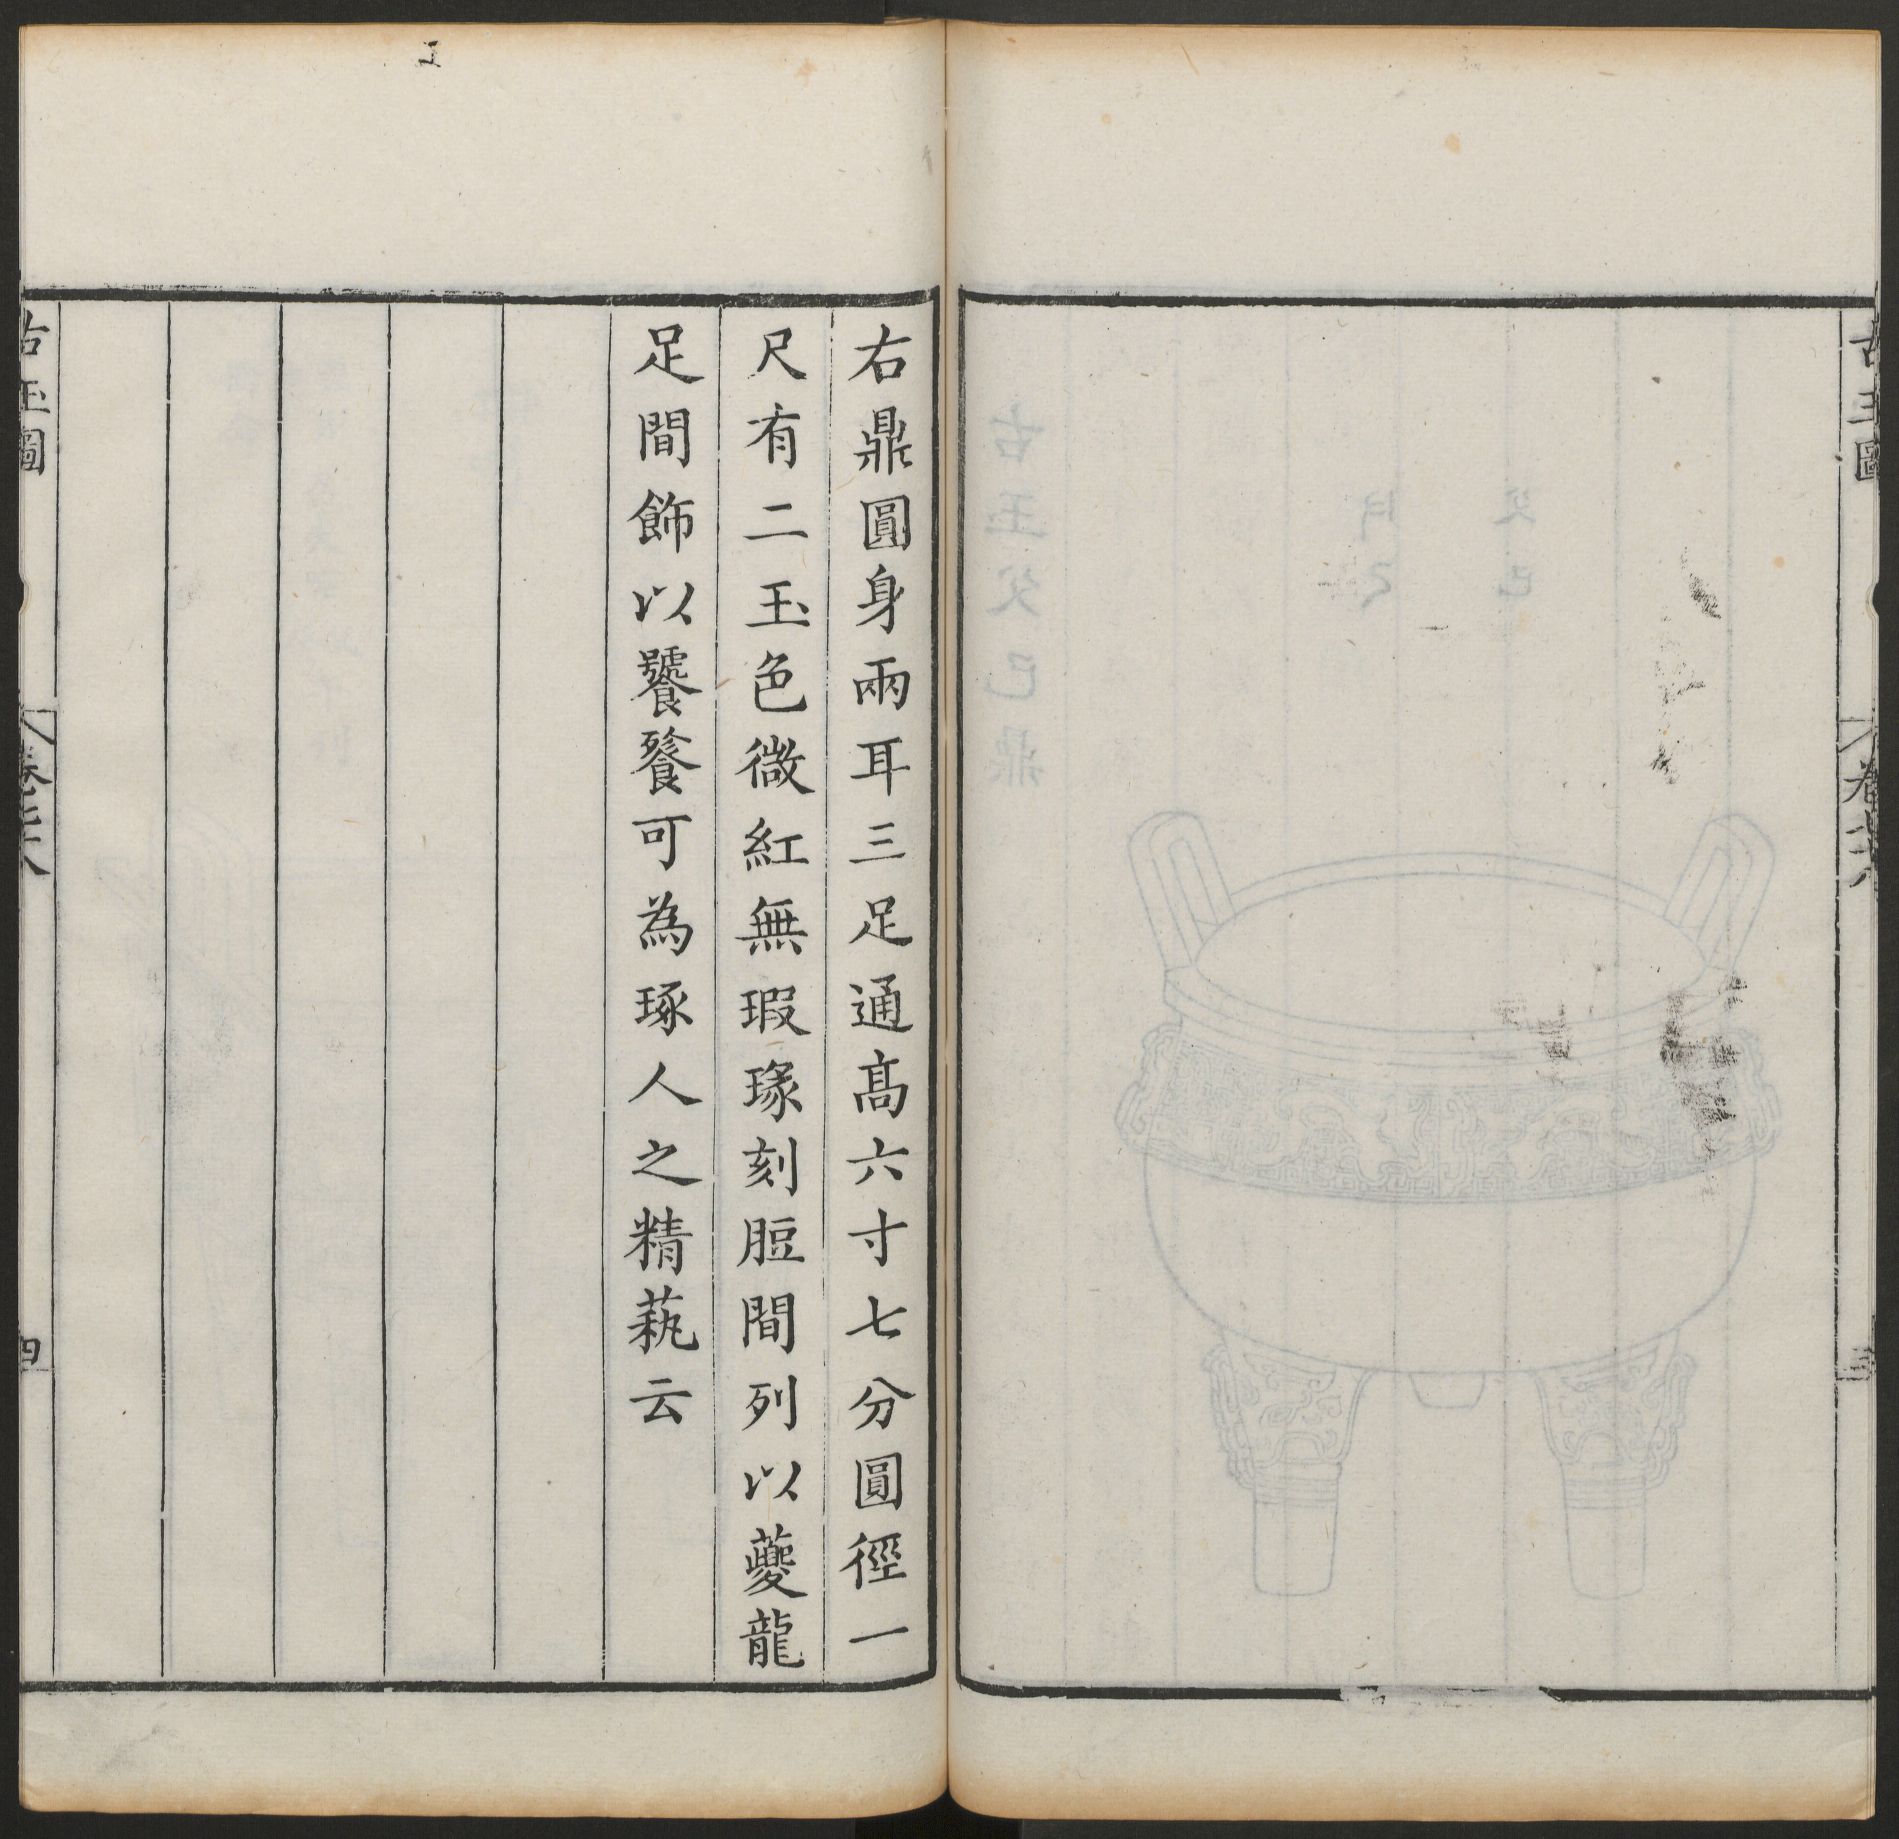 古玉圖
三
右鼎圓身兩耳三足通高六寸七分圓徑一
尺有二玉色微紅無瑕瑑刻脰間列以夔龍
足間飾以饕餮可為琢人之精蓺云
古玉圖
四